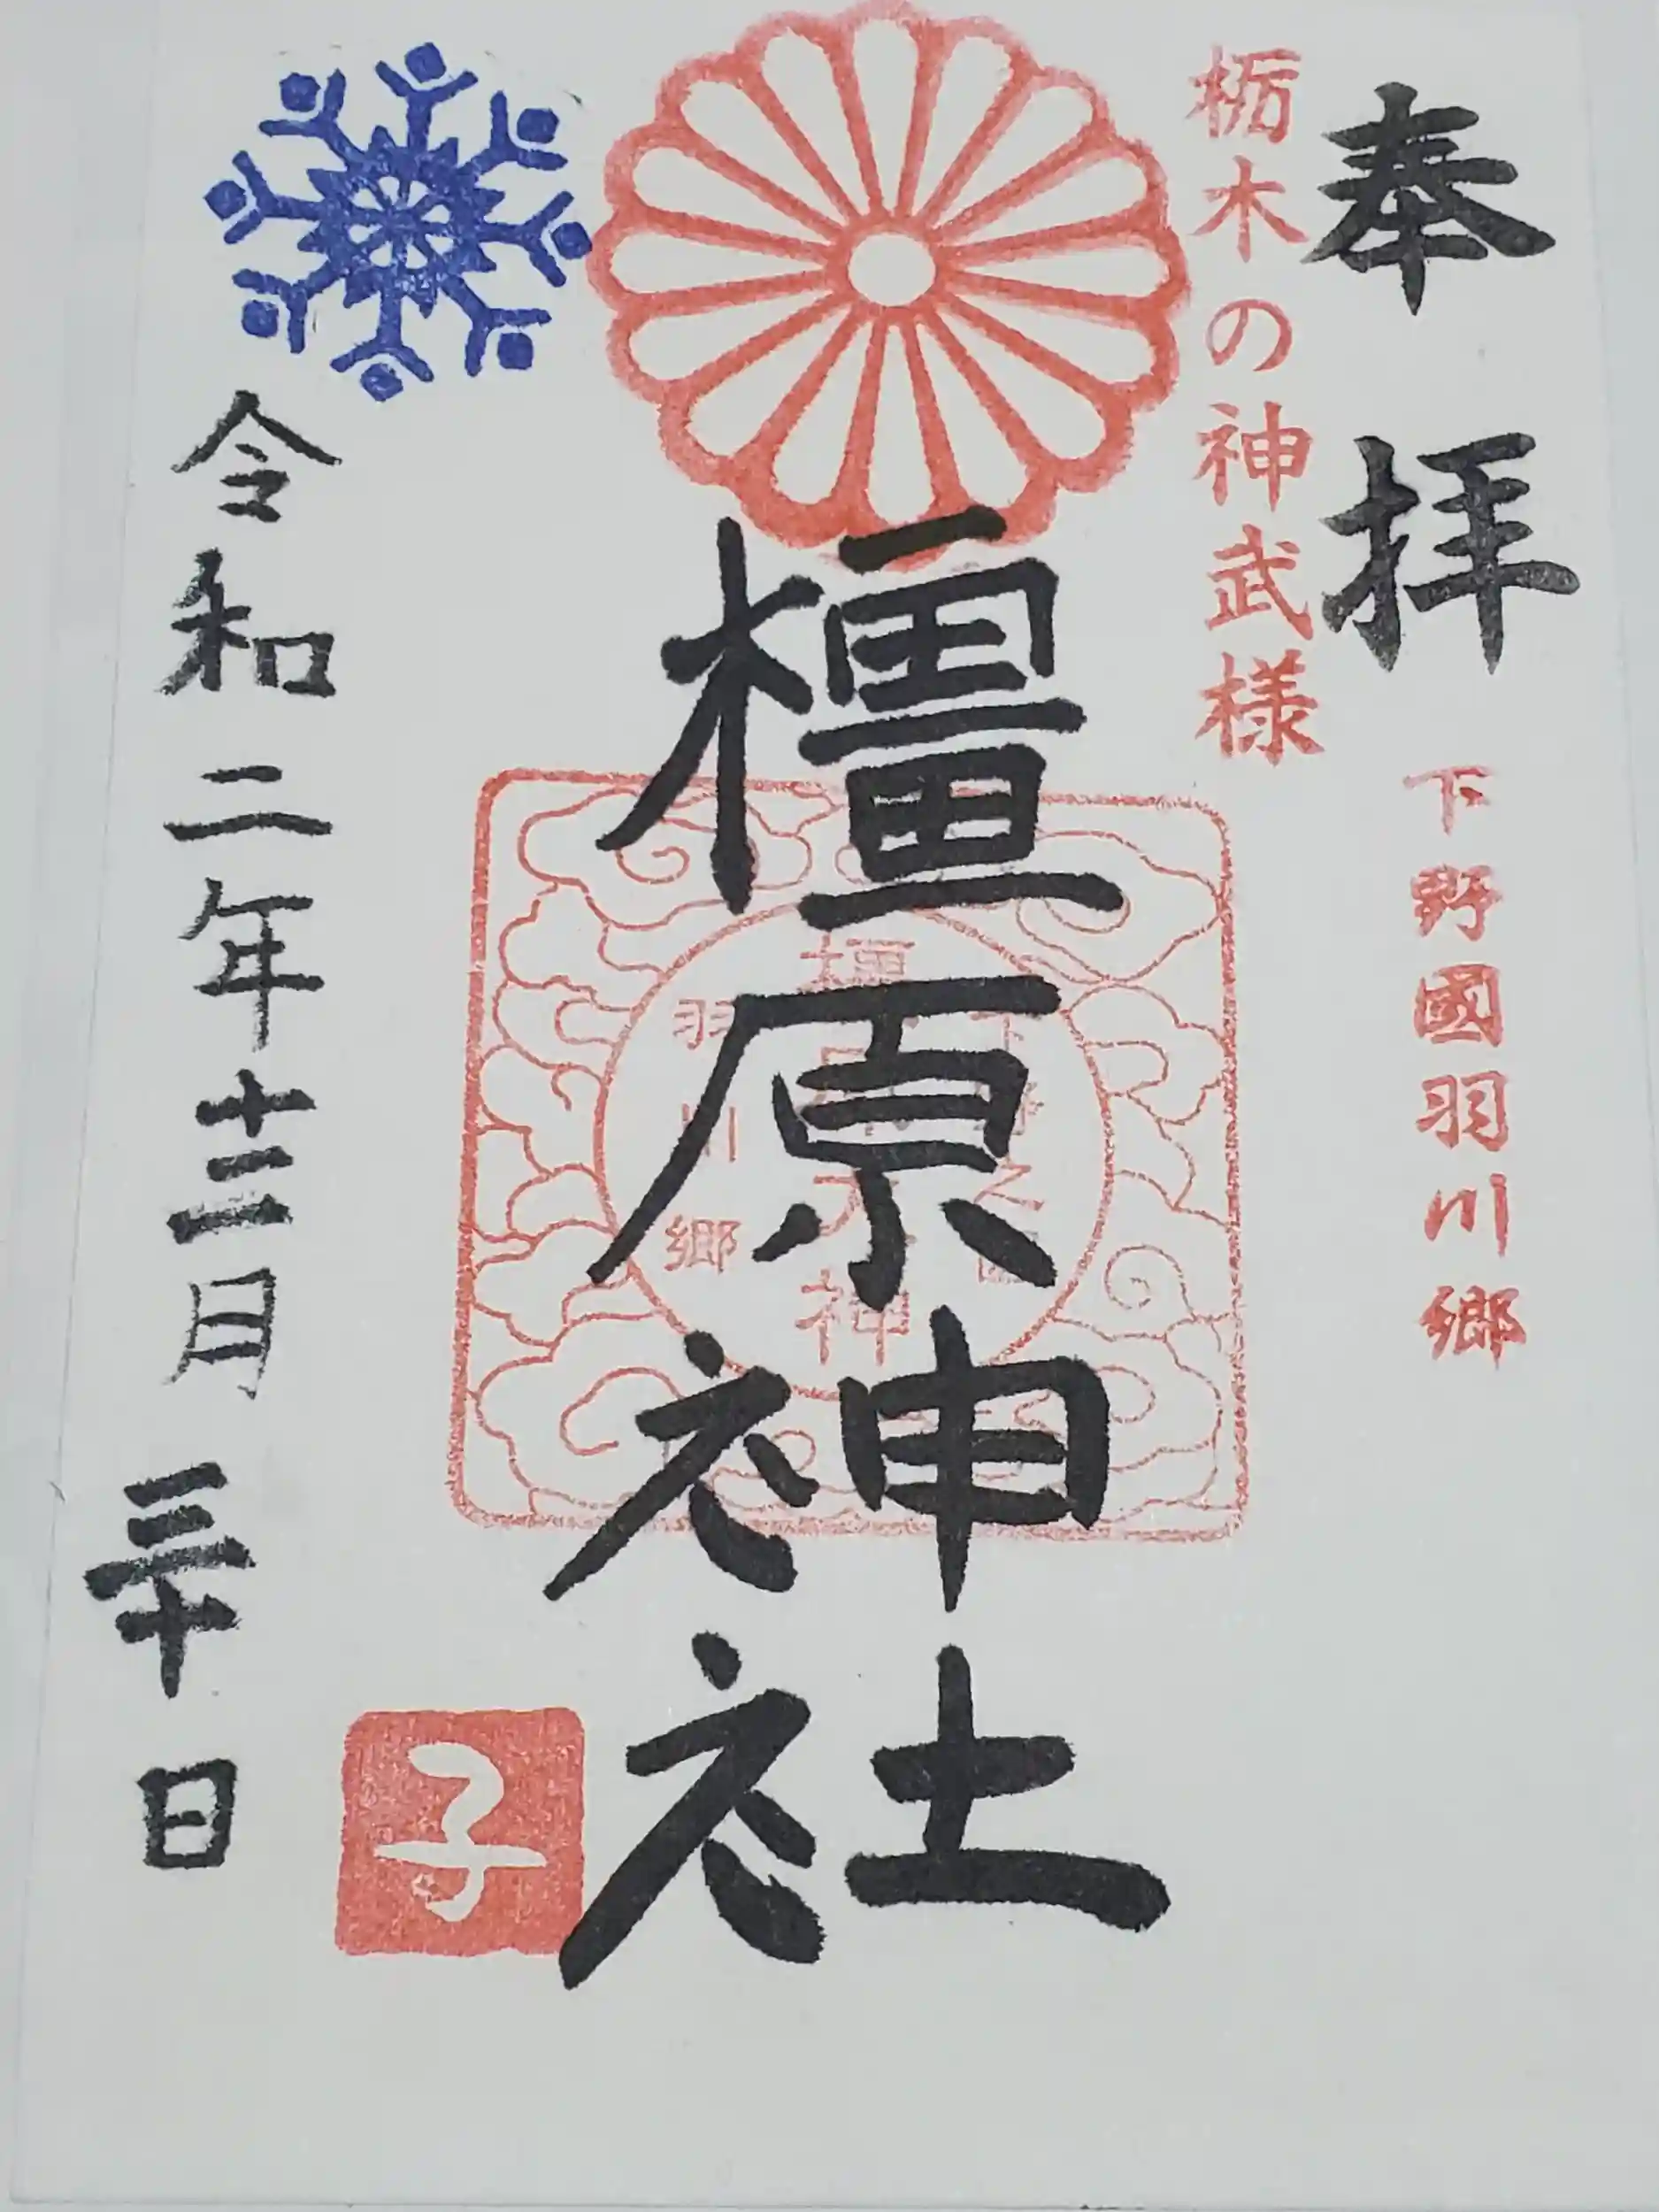 奉拝
下野國羽川郷
栃木の神武様
橿原神社
子
令和二年十二月三十日